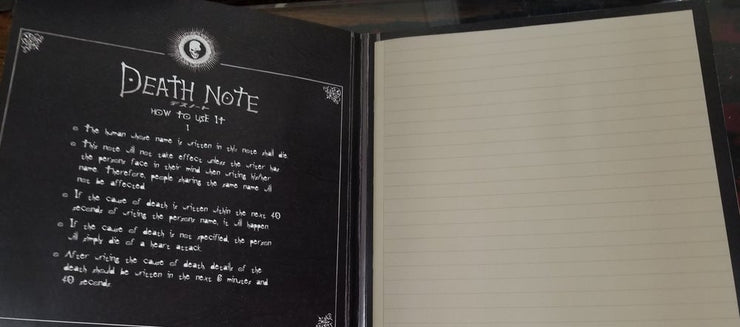 DEATH NOTE
デスノート
HOW TO USE It
I
The human whose name is written in this note shall die.
This note will not take effect unless the writer has
the persons face in their mind when writing his/her
name. Therefore, people sharing the same name will
not be affected.
If the cause of death is written within the next 40
seconds of writing the persons name, it will happen.
If the cause of death is not specified, the person
will simply die of a heart attack.
After writing the cause of death, details of the
death should be written in the next 6 minutes and
40 seconds.